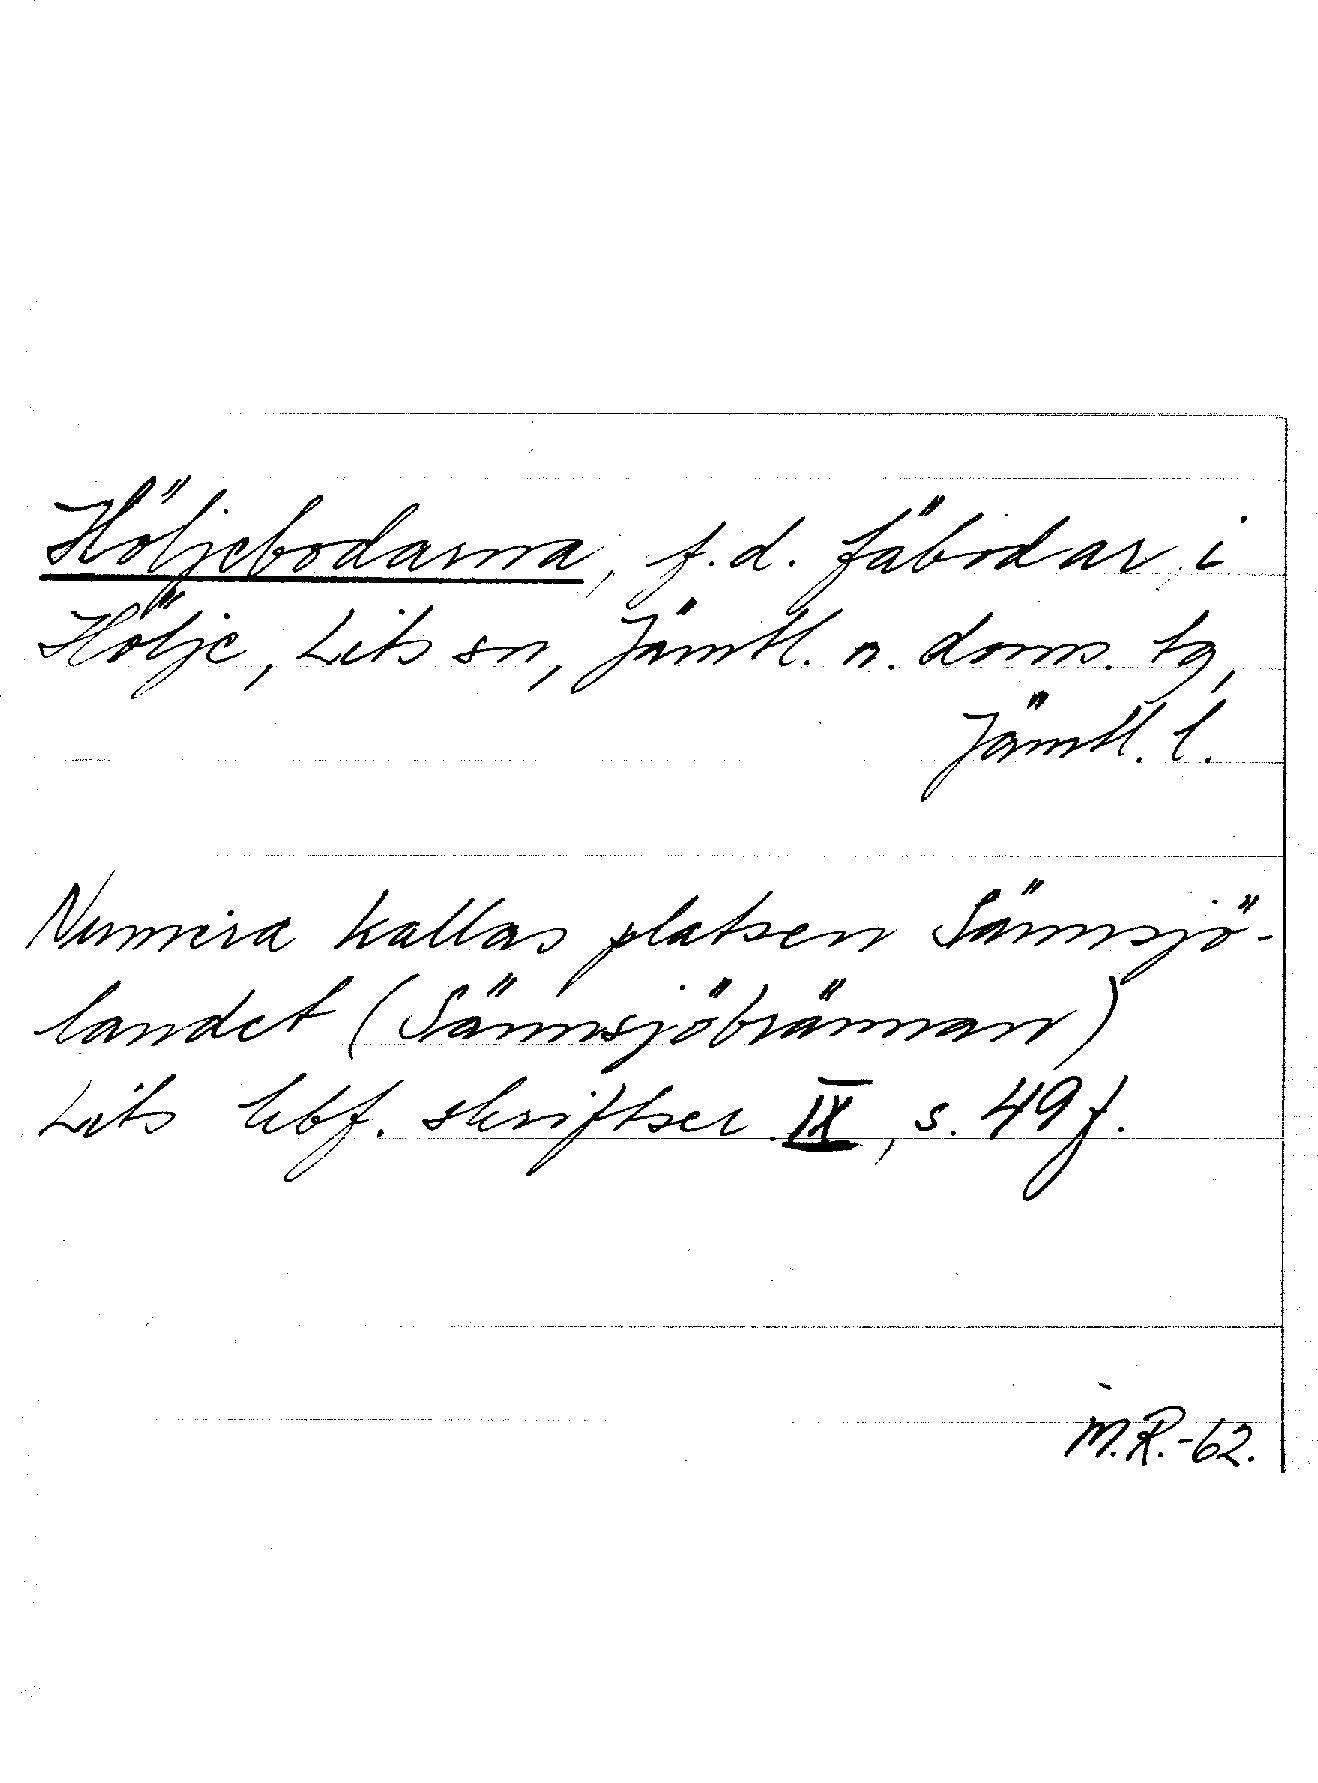 Höljebodarna, f.d. fäbodar i
Hölje, Lits sn, Jämtl. n. doms. tg,
Jämtl. l.
Numera kallas platsen Sännsjö-
landet (Sännsjöbrännan)
Lits hbf. skriftser. IX, s. 49 f.
M.R.-62.